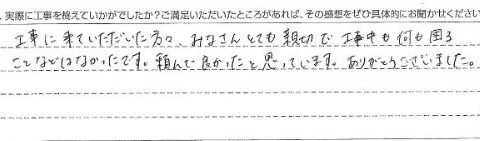 実際に工事を終えていかがでしたか？ご満足いただいたところがあれば、その感想をぜひ具体的にお聞かせください
工事に来ていただいた方々、みなさんとても親切で工事中も何も困る
ことなどはなかったです。頼んで良かったと思っています。ありがとうございました。